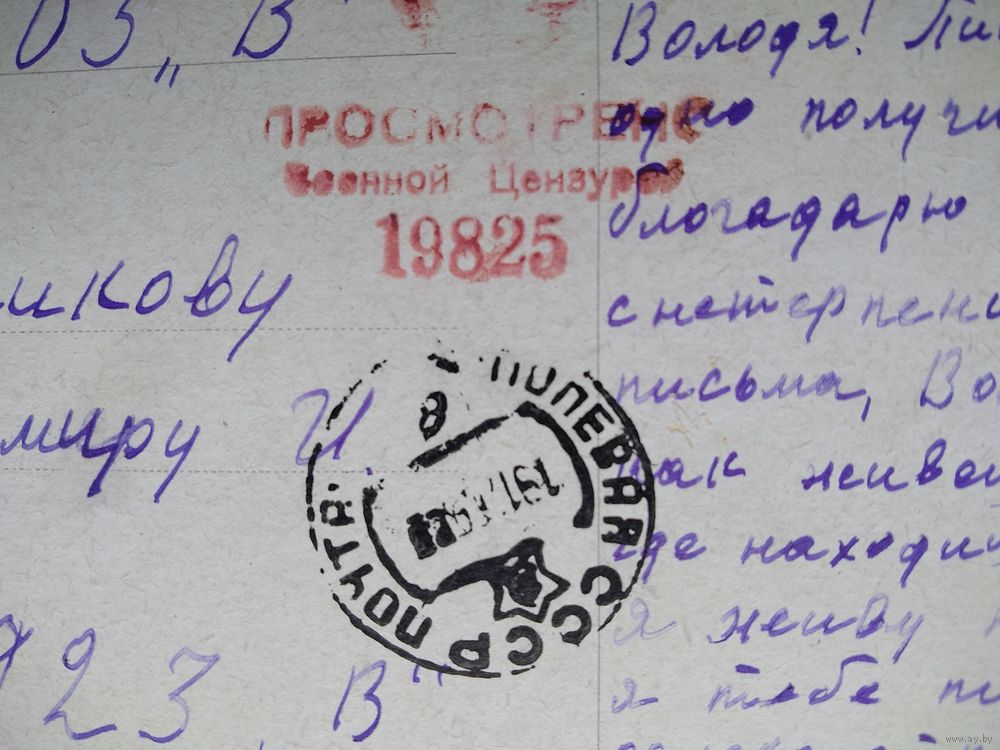 03 „В"
ПРОСМОТРЕНО
Военной Цензурой
19825
икову
миру И.
ПОЛЕВАЯ ПОЧТА
СССР
23 „В"
Володя! Пи
одно получи
блогадарю
с нетерпени
письма, Во
как живеш
где находи
я живу
я тебе пи
www.ay.by